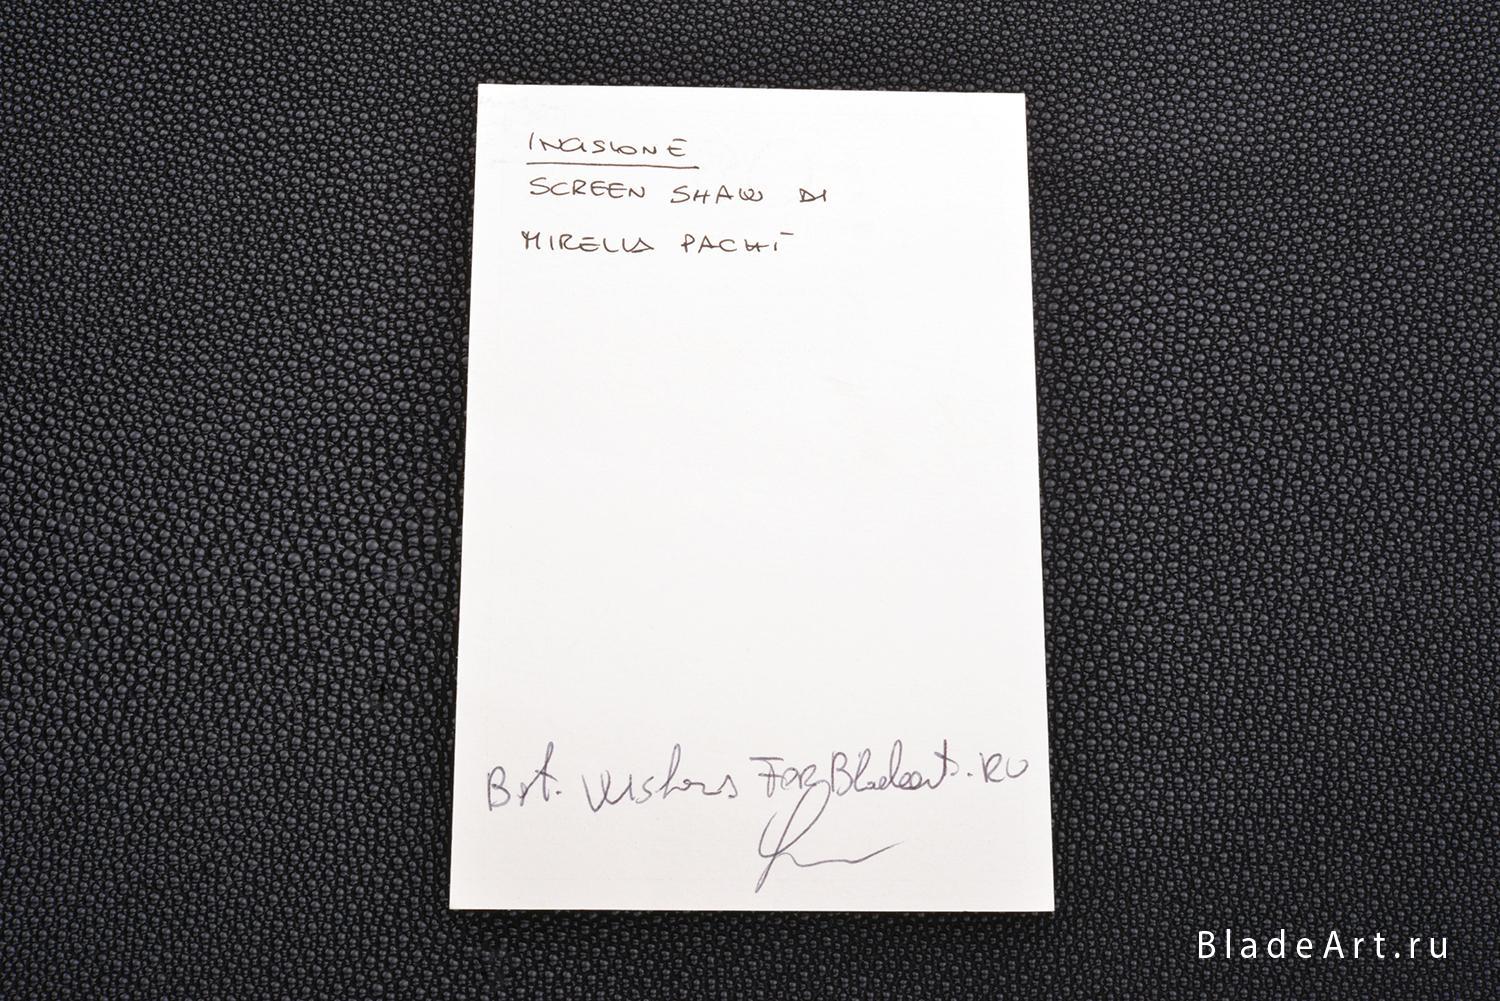 INCISIONE
SCREEN SHAW DI
MIRELLA PACHÌ
Best. Wishes FOR Bladeart.RU
BladeArt.ru